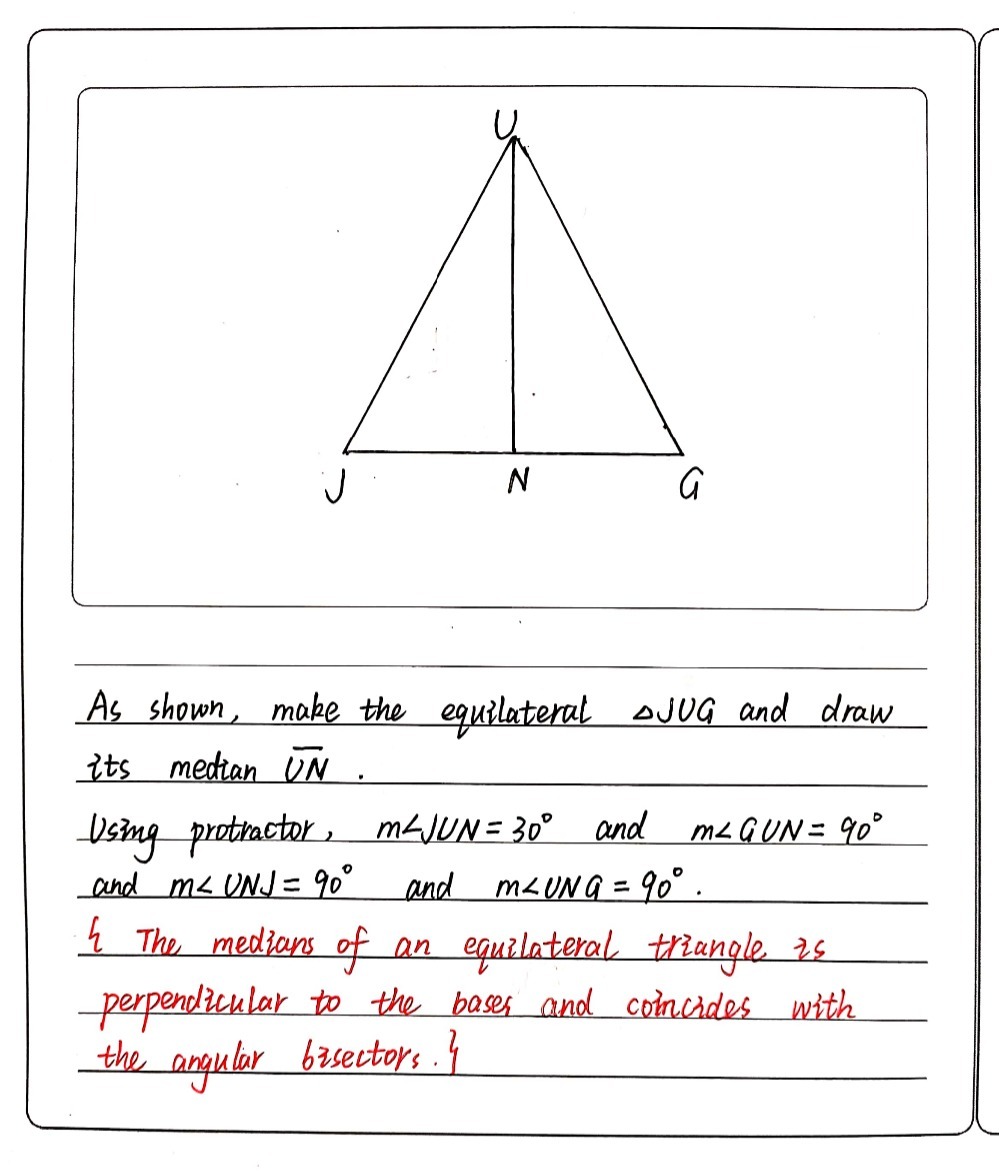 U
J N G
As shown, make the equilateral △JUG and draw
its median U̅N̅ .
Using protractor, m∠JUN = 30° and m∠GUN = 90°
and m∠UNJ = 90° and m∠UNG = 90° .
{ The medians of an equilateral triangle is
perpendicular to the bases and coincides with
the angular bisectors. }